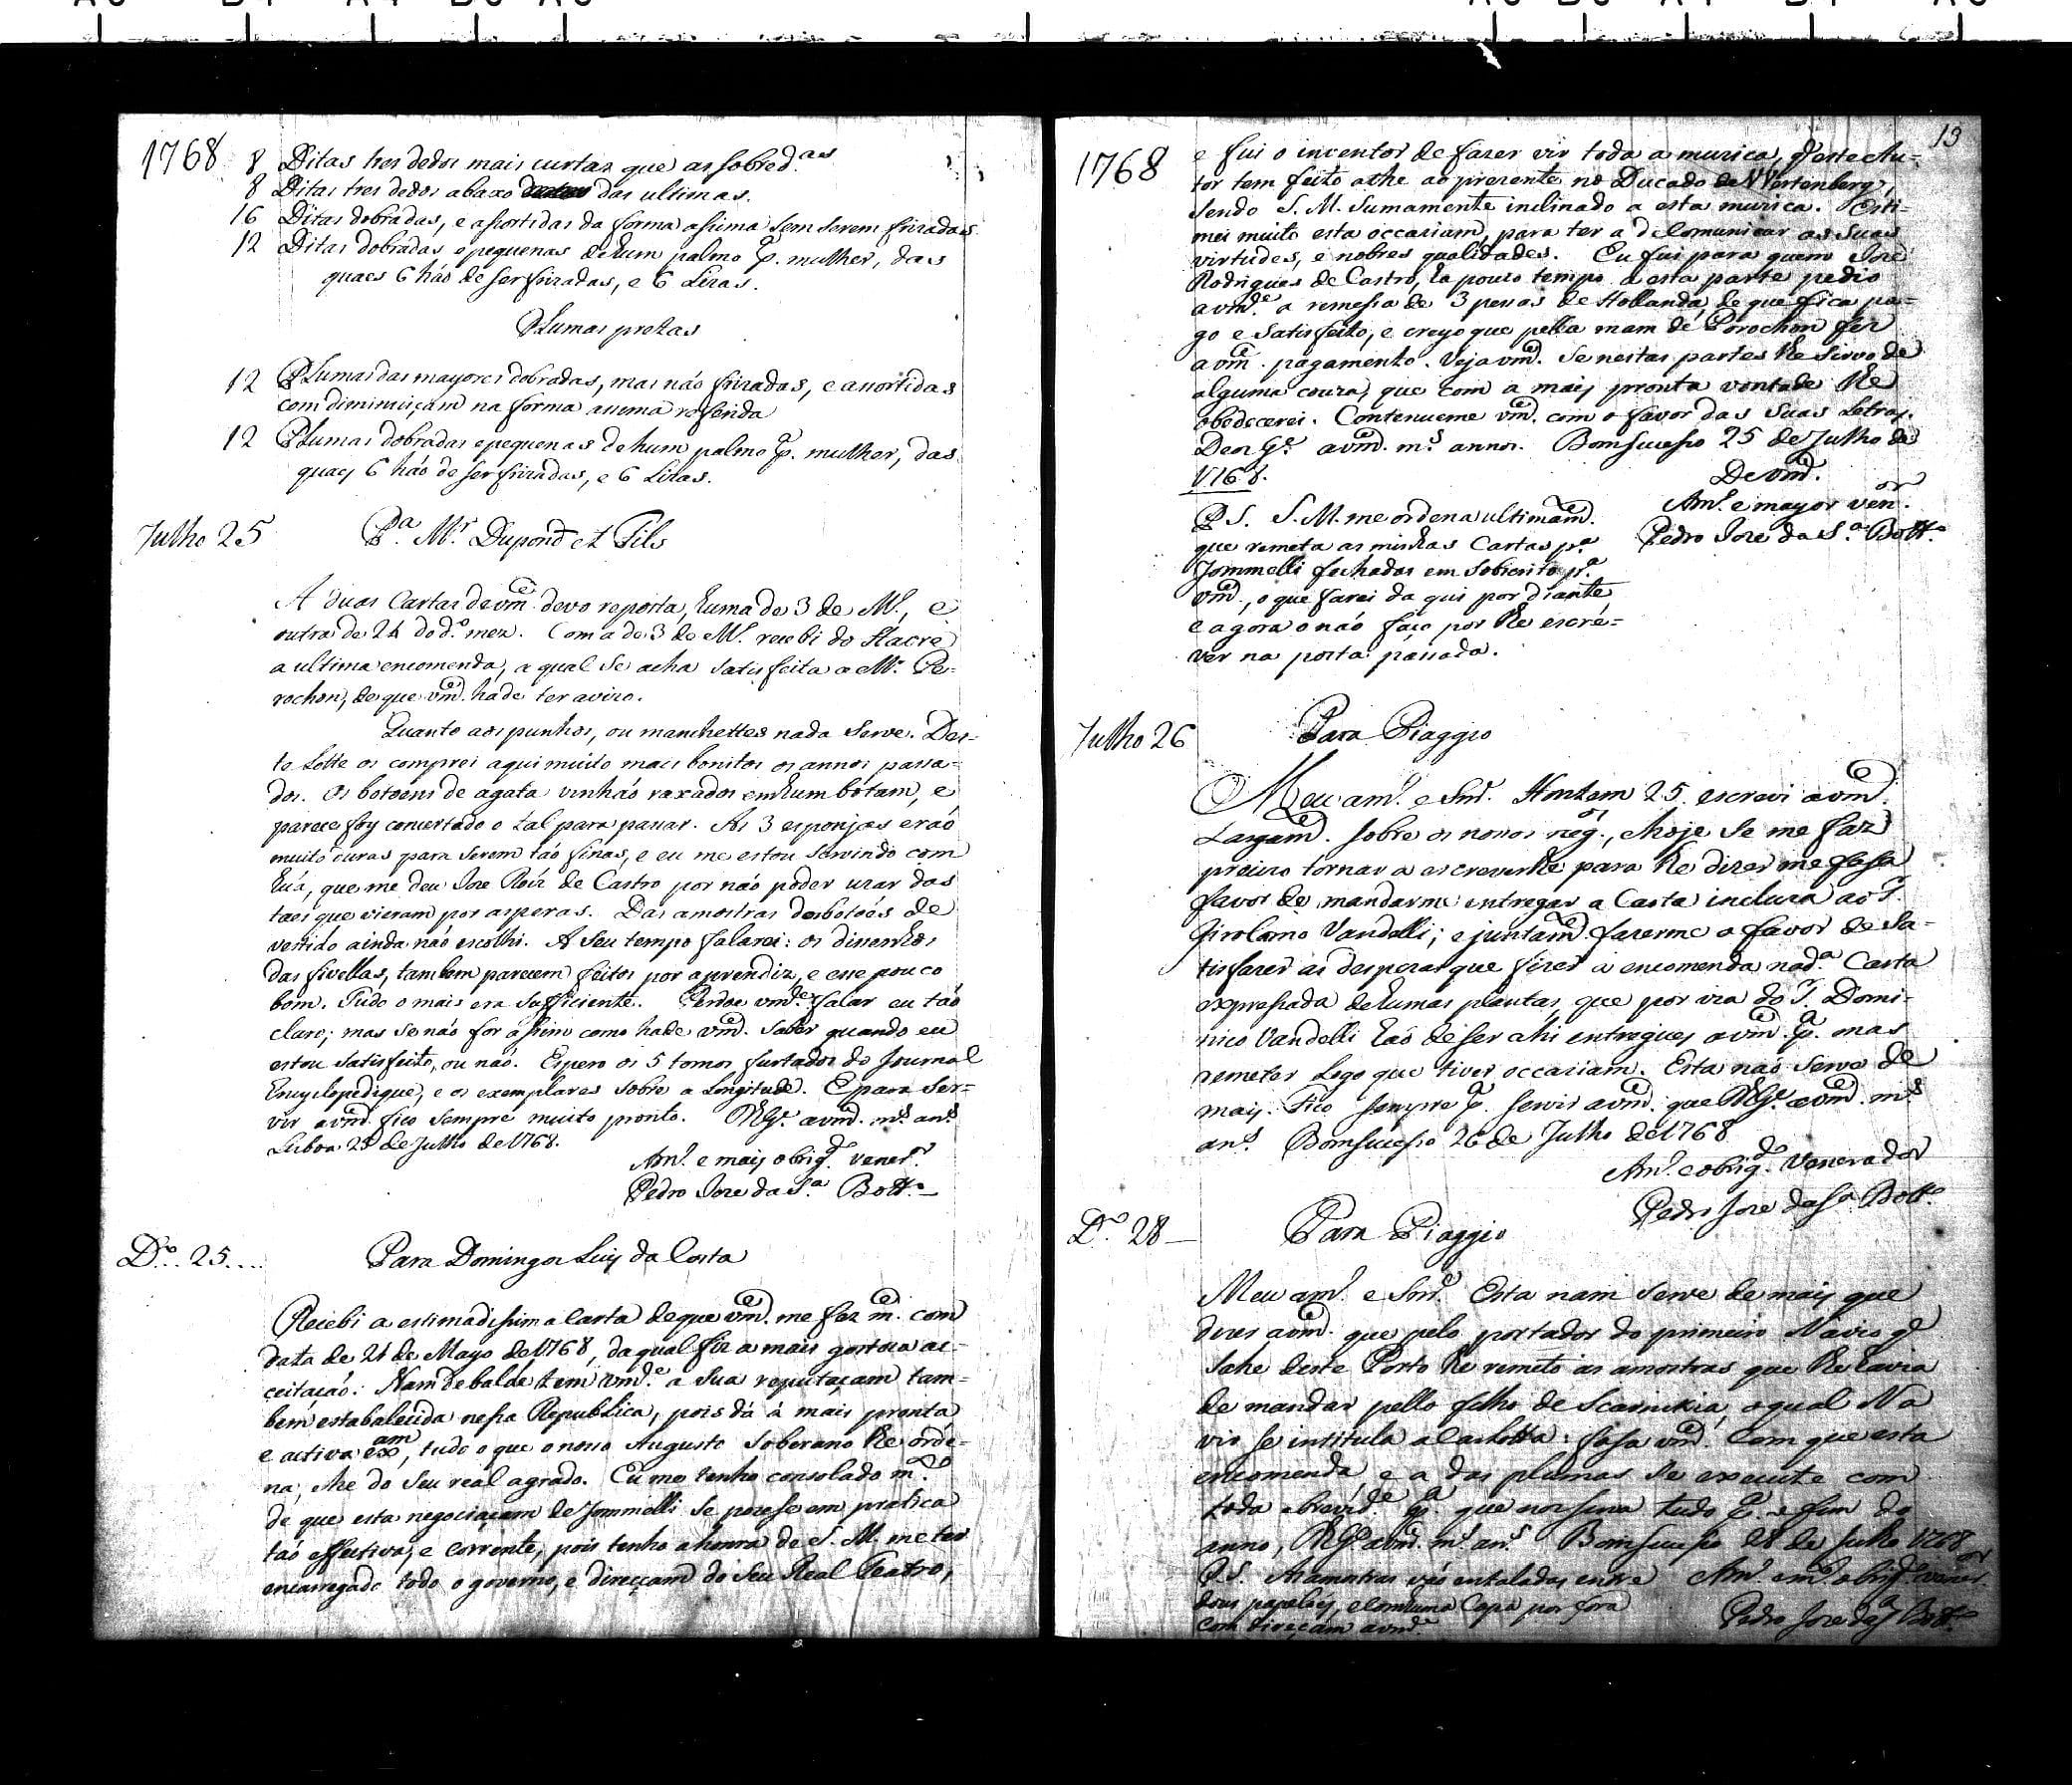 1768
8 Ditas tres dedos mais curtas que as sobred.as
8 Ditas tres dedos abaxo das ultimas.
16 Ditas dobradas, e assortidas da forma assima sem serem frizadas
12 Ditas dobradas e pequenas de hum palmo p.a mulher, das
quaes 6 háo de ser frizadas, e 6 Lizas.
Plumas pretas
12 Plumas das mayores dobradas, mas náo frizadas, e assortidas
com diminuiçam na forma assima referida
12 Plumas dobradas e pequenas de hum palmo p.a mulher, das
quaes 6 háo de ser frizadas, e 6 Lizas.
Julho 25 P.a M.r Dupond et Fils
A duas Cartas de vm.e devo reposta, huma de 3 de M.o, e
outra de 24 do d.o mez. Com a de 3 de M.o recebi do Hacre
a ultima encomenda, a qual se acha satisfeita a M.r Pe-
rochon, de que vm.e hade ter avizo.
Quanto aos punhos, ou manchettes nada serve. Des-
te Lotte os comprei aqui muito mais bonitos os annos passa-
dos. Os botoens de agata vinháo raxados em hum botam, e
parece foy concertado o tal para passar. As 3 esponjas eráo
muito duras para serem táo finas, e eu me estou servindo com
húa, que me deu Joze Roíz de Castro por náo poder uzar das
taes que vieram por asperas. Das amostras dos botoés de
vestido ainda náo escolhi. A seu tempo falarei: os dissenhos
das fivellas, tambem parecem feitos por aprendiz, e esse pouco
bom. Tudo o mais era sufficiente. Perdoe vm.e falar eu táo
claro; mas se náo for assim como hade vm.e saber quando eu
estou satisfeito, ou náo. Espero os 5 tomos furtados do Journal
Encyclopedique, e os exemplares sobre a Longitude. E para ser-
vir a vm.e fico sempre muito pronto. D.s G.e a vm.e m.s an.s
Lisboa 25 de Julho de 1768.
Am.o e mais obrig.do vener.r
Pedro Joze da S.a Bott.o
D.o 25.... Para Domingos Luis da Costa
Recebi a estimadissima Carta de que vm.e me fez m.e com
data de 21 de Mayo de 1768, da qual fiz a mais gostoza ac-
ceitaçáo. Nam debalde tem vm.e a sua reputaçam tam-
bem estabalecida nessa Republica, pois dá á mais pronta
e activa exam, tudo o que o nosso Augusto Soberano lhe orde-
na, e he do seu real agrado. Eu me tenho consolado m.to
de que esta negociaçam de Jommelli se pozesse em pratica
táo effectiva, e corrente, pois tenho a honra de S. M. me ter
encarregado todo o governo, e direçam do seu Real Teatro,
13
1768
e fui o inventor de fazer vir toda a muzica, q' este Au-
tor tem feito athe ao prezente no Ducado de Wirtenberg,
sendo S. M. sumamente inclinado a esta muzica. Esti-
mei muito esta occaziam, para ter a de Comunicar as suas
virtudes, e nobres qualidades. Eu fui para quem Joze
Rodrigues de Castro, ha pouco tempo a esta parte pedio
a vm.e a remessa de 3 pessas de Hollanda, de que fica pa-
go e satisfeito, e creyo que pella mam de Porochon fez
a vm.e pagamento. Veja vm.e se nestas partes lhe sirvo de
alguma couza, que com a mais pronta vontade lhe
obedecerei. Contenueme vm.e com o favor das suas Letras.
Deos G.e a vm.e m.s annos. Bomsucesso 25 de Julho de
1768.
De vm.e
Am.o e mayor ven.or
Pedro Joze da S.a Bott.o
P.S. S. M. me ordena ultimam.e
que remeta as minhas Cartas p.a
Jommelli fechadas em sobscrito p.a
vm.e, o que farei da qui por diante
e agora o náo faço por lhe escré-
ver na posta passada.
Julho 26 Para Piaggio
Meu am.o e Snr. Hontem 25 escrevi a vm.e
Largam.e sobre os nossos neg.os, e hoje se me faz
precizo tornar a escreverlhe para lhe dizer me fassa
favor de mandarme entregar a Carta incluza ao S.
Girolamo Vandelli; e juntam.e fazerme o favor de sa-
tisfazer as despezas que fizer a encomenda na d.a Carta
expressada de humas plantas, que por via do S. Domi-
nico Vandelli háo de ser ahi entregues a vm.e p.a mas
remeter Logo que tiver occaziam. Esta náo serve de
mais. Fico sempre p.a servir a vm.e que D.s G.e a vm.e m.s
an.s Bomsucesso 26 de Julho de 1768
Am.o e obrig.do Venerador
Pedro Joze da S.a Bott.o
D.o 28 Para Piaggio
Meu am.o e Snr. Esta nam serve de mais que
dizer a vm.e que pelo portador do primeiro Navio q'
sahe deste Porto lhe remeto as amostras que lhe havia
de mandar pello filho de Scarnikia, o qual Na
vio se intitula a Carlotta. fassa vm.e com que esta
encomenda, e a das plumas se execute com
toda a brevid.e p.a que nos sirva tudo p.a o fim do
anno, D.s G.e a vm.e m.s an.s Bomsucesso 28 de Julho 1768
P.S. As amostras váo entaladas entre
dous papeloẽs, e com huma Capa por fora
com direçam a vm.e
Pedro Joze da S.a Bott.o